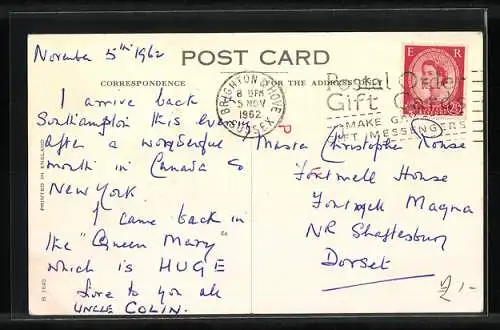 November 5th 1962
POST CARD
CORRESPONDENCE
FOR THE ADDRESS ONLY
E R
BRIGHTON & HOVE
8 PM
5 NOV
1962
SUSSEX
Postal Order
Gift Cards
MAKE GAY
GIFT MESSENGERS
I arrive back
Southampton this evening
after a wonderful
month in Canada &
New York
I came back in
the "Queen Mary"
which is HUGE
Love to you all
UNCLE COLIN.
Master Christopher Rouse
Fontmell House
Fontmell Magna
NR Shaftesbury
Dorset
£1-
PRINTED IN ENGLAND